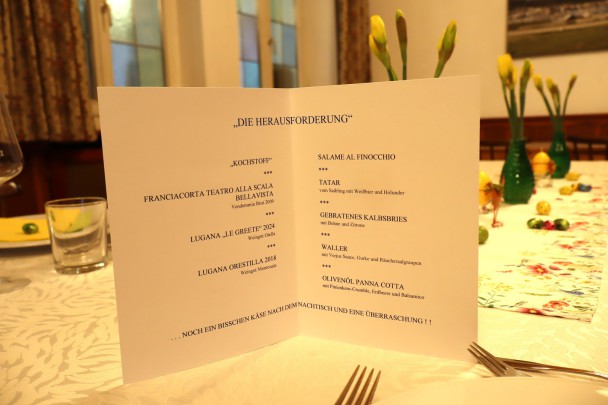 „DIE HERAUSFORDERUNG“
„KOCHSTOFF“
***
FRANCIACORTA TEATRO ALLA SCALA
BELLAVISTA
Vendemmia Brut 2009
***
LUGANA „LE GREETE“ 2024
Weingut
***
LUGANA ORESTILLA 2018
Weingut Montonale
SALAME AL FINOCCHIO
***
TATAR
vom Saibling mit Weißbier und Holunder
***
GEBRATENES KALBSBRIES
mit Bohne und Zitrone
***
WALLER
mit Verjus Sauce, Gurke und Räucheraalgraupen
***
OLIVENÖL PANNA COTTA
mit Pinienkern-Crumble, Erdbeere und Balsamico
. . . NOCH EIN BISSCHEN KÄSE NACH DEM NACHTISCH UND EINE ÜBERRASCHUNG ! !